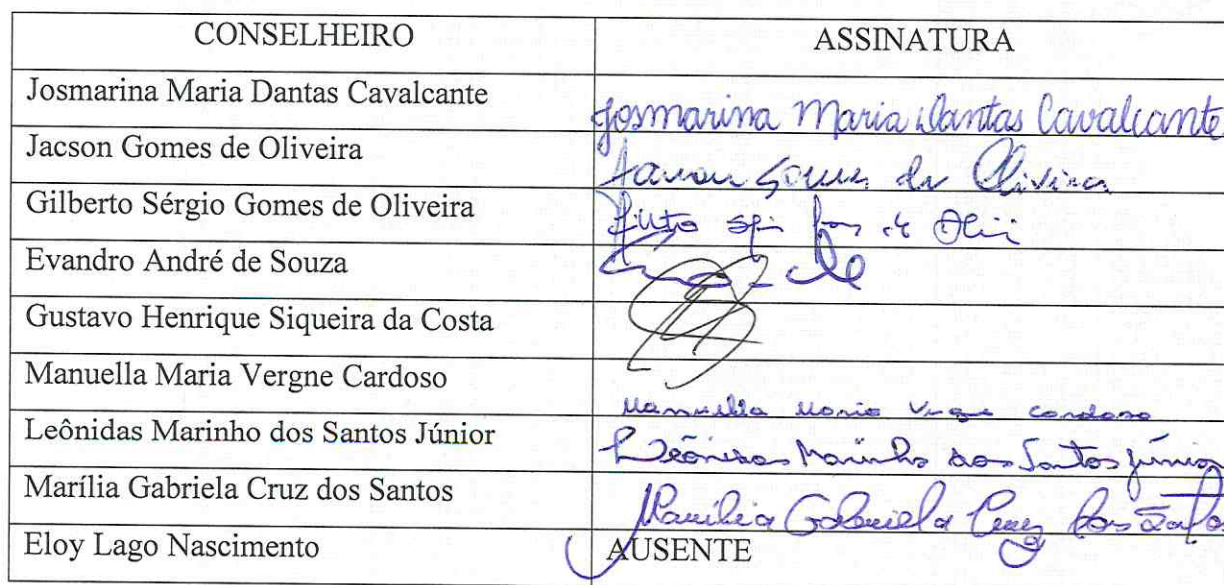 CONSELHEIRO ASSINATURA
Josmarina Maria Dantas Cavalcante Josmarina Maria Dantas Cavalcante
Jacson Gomes de Oliveira Gomes de Oliveira
Gilberto Sérgio Gomes de Oliveira
Evandro André de Souza
Gustavo Henrique Siqueira da Costa
Manuella Maria Vergne Cardoso Manuella Maria Vergne Cardoso
Leônidas Marinho dos Santos Júnior Leônidas Marinho dos Santos Júnior
Marília Gabriela Cruz dos Santos Marília Gabriela Cruz dos Santos
Eloy Lago Nascimento AUSENTE